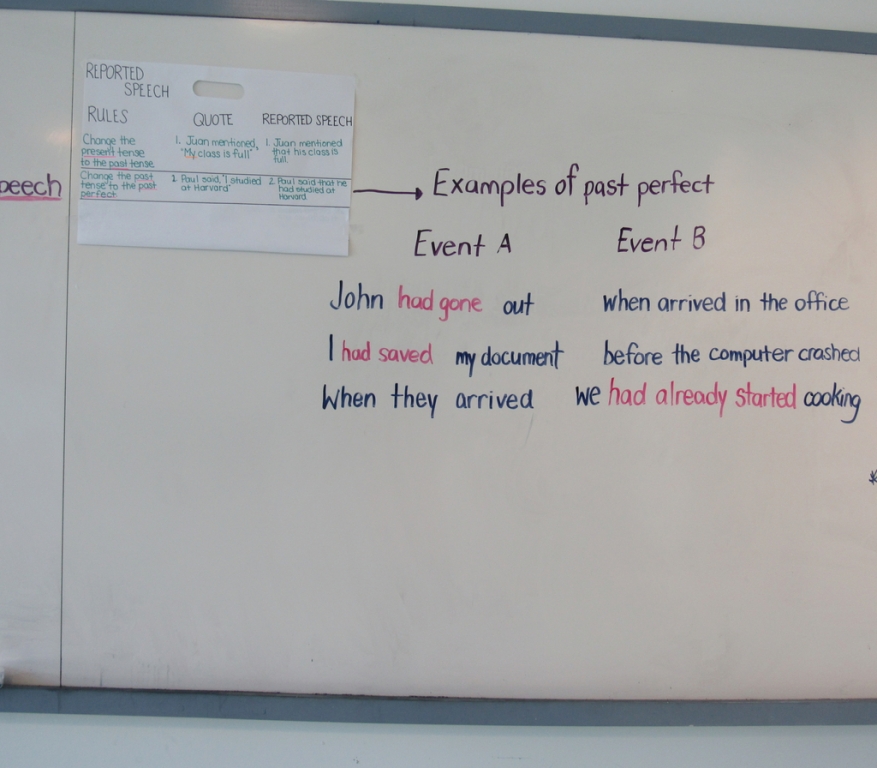 peech
REPORTED
SPEECH
RULES QUOTE REPORTED SPEECH
Change the
present tense
to the past tense
1. Juan mentioned,
"My class is full"
1. Juan mentioned
that his class is
full.
Change the past
tense to the past
perfect.
2 Paul said, "I studied
at Harvard"
2. Paul said that he
had studied at
Harvard.
Examples of past perfect
Event A Event B
John had gone out when arrived in the office
I had saved my document before the computer crashed
When they arrived we had already started cooking
*